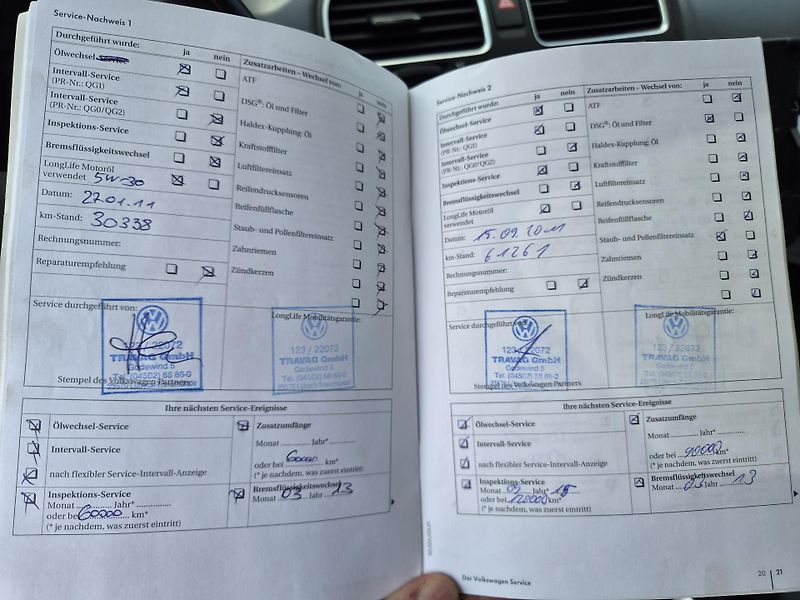 Service-Nachweis 1
Durchgeführt wurde:
ja
nein
Zusatzarbeiten – Wechsel von:
ja
nein
Ölwechsel
Intervall-Service
(PR-Nr.: QG1)
Intervall-Service
(PR-Nr.: QG0/QG2)
Inspektions-Service
Bremsflüssigkeitswechsel
LongLife Motoröl
verwendet 5W-30
Datum: 27.01.11
km-Stand: 30338
Rechnungsnummer:
Reparaturempfehlung
ATF
DSG®: Öl und Filter
Haldex-Kupplung: Öl
Kraftstofffilter
Luftfiltereinsatz
Reifendrucksensoren
Reifenfüllflasche
Staub- und Pollenfiltereinsatz
Zahnriemen
Zündkerzen
Service durchgeführt von:
LongLife Mobilitätsgarantie:
123 / 22072
TRAVAG GmbH
Godewind 5
Tel. (04502) 88 88-0
123 / 22072
TRAVAG GmbH
Godewind 5
Tel. (04502) 88 88-0
Stempel des Volkswagen Partners
Ihre nächsten Service-Ereignisse
Ölwechsel-Service
Intervall-Service
nach flexibler Service-Intervall-Anzeige
Inspektions-Service
Monat Jahr*
oder bei 60000 km*
(* je nachdem, was zuerst eintritt)
Zusatzumfänge
Monat Jahr*
oder bei 60000 km*
(* je nachdem, was zuerst eintritt)
Bremsflüssigkeitswechsel
Monat 03 Jahr 13
Service-Nachweis 2
Durchgeführt wurde:
ja
nein
Zusatzarbeiten – Wechsel von:
ja
nein
Ölwechsel-Service
Intervall-Service
(PR-Nr.: QG1)
Intervall-Service
(PR-Nr.: QG0/QG2)
Inspektions-Service
Bremsflüssigkeitswechsel
LongLife Motoröl
verwendet
Datum: 15.09.2011
km-Stand: 61261
Rechnungsnummer:
Reparaturempfehlung
ATF
DSG®: Öl und Filter
Haldex-Kupplung: Öl
Kraftstofffilter
Luftfiltereinsatz
Reifendrucksensoren
Reifenfüllflasche
Staub- und Pollenfiltereinsatz
Zahnriemen
Zündkerzen
Service durchgeführt von:
LongLife Mobilitätsgarantie:
123 / 22072
TRAVAG GmbH
Godewind 5
Tel. (04502) 88 88-0
123 / 22072
TRAVAG GmbH
Godewind 5
Tel. (04502) 88 88-0
Stempel des Volkswagen Partners
Ihre nächsten Service-Ereignisse
Ölwechsel-Service
Intervall-Service
nach flexibler Service-Intervall-Anzeige
Inspektions-Service
Monat 09 Jahr* 15
oder bei 120000 km*
(* je nachdem, was zuerst eintritt)
Zusatzumfänge
Monat Jahr*
oder bei 90000 km*
(* je nachdem, was zuerst eintritt)
Bremsflüssigkeitswechsel
Monat 03 Jahr 13
Der Volkswagen Service
20 | 21